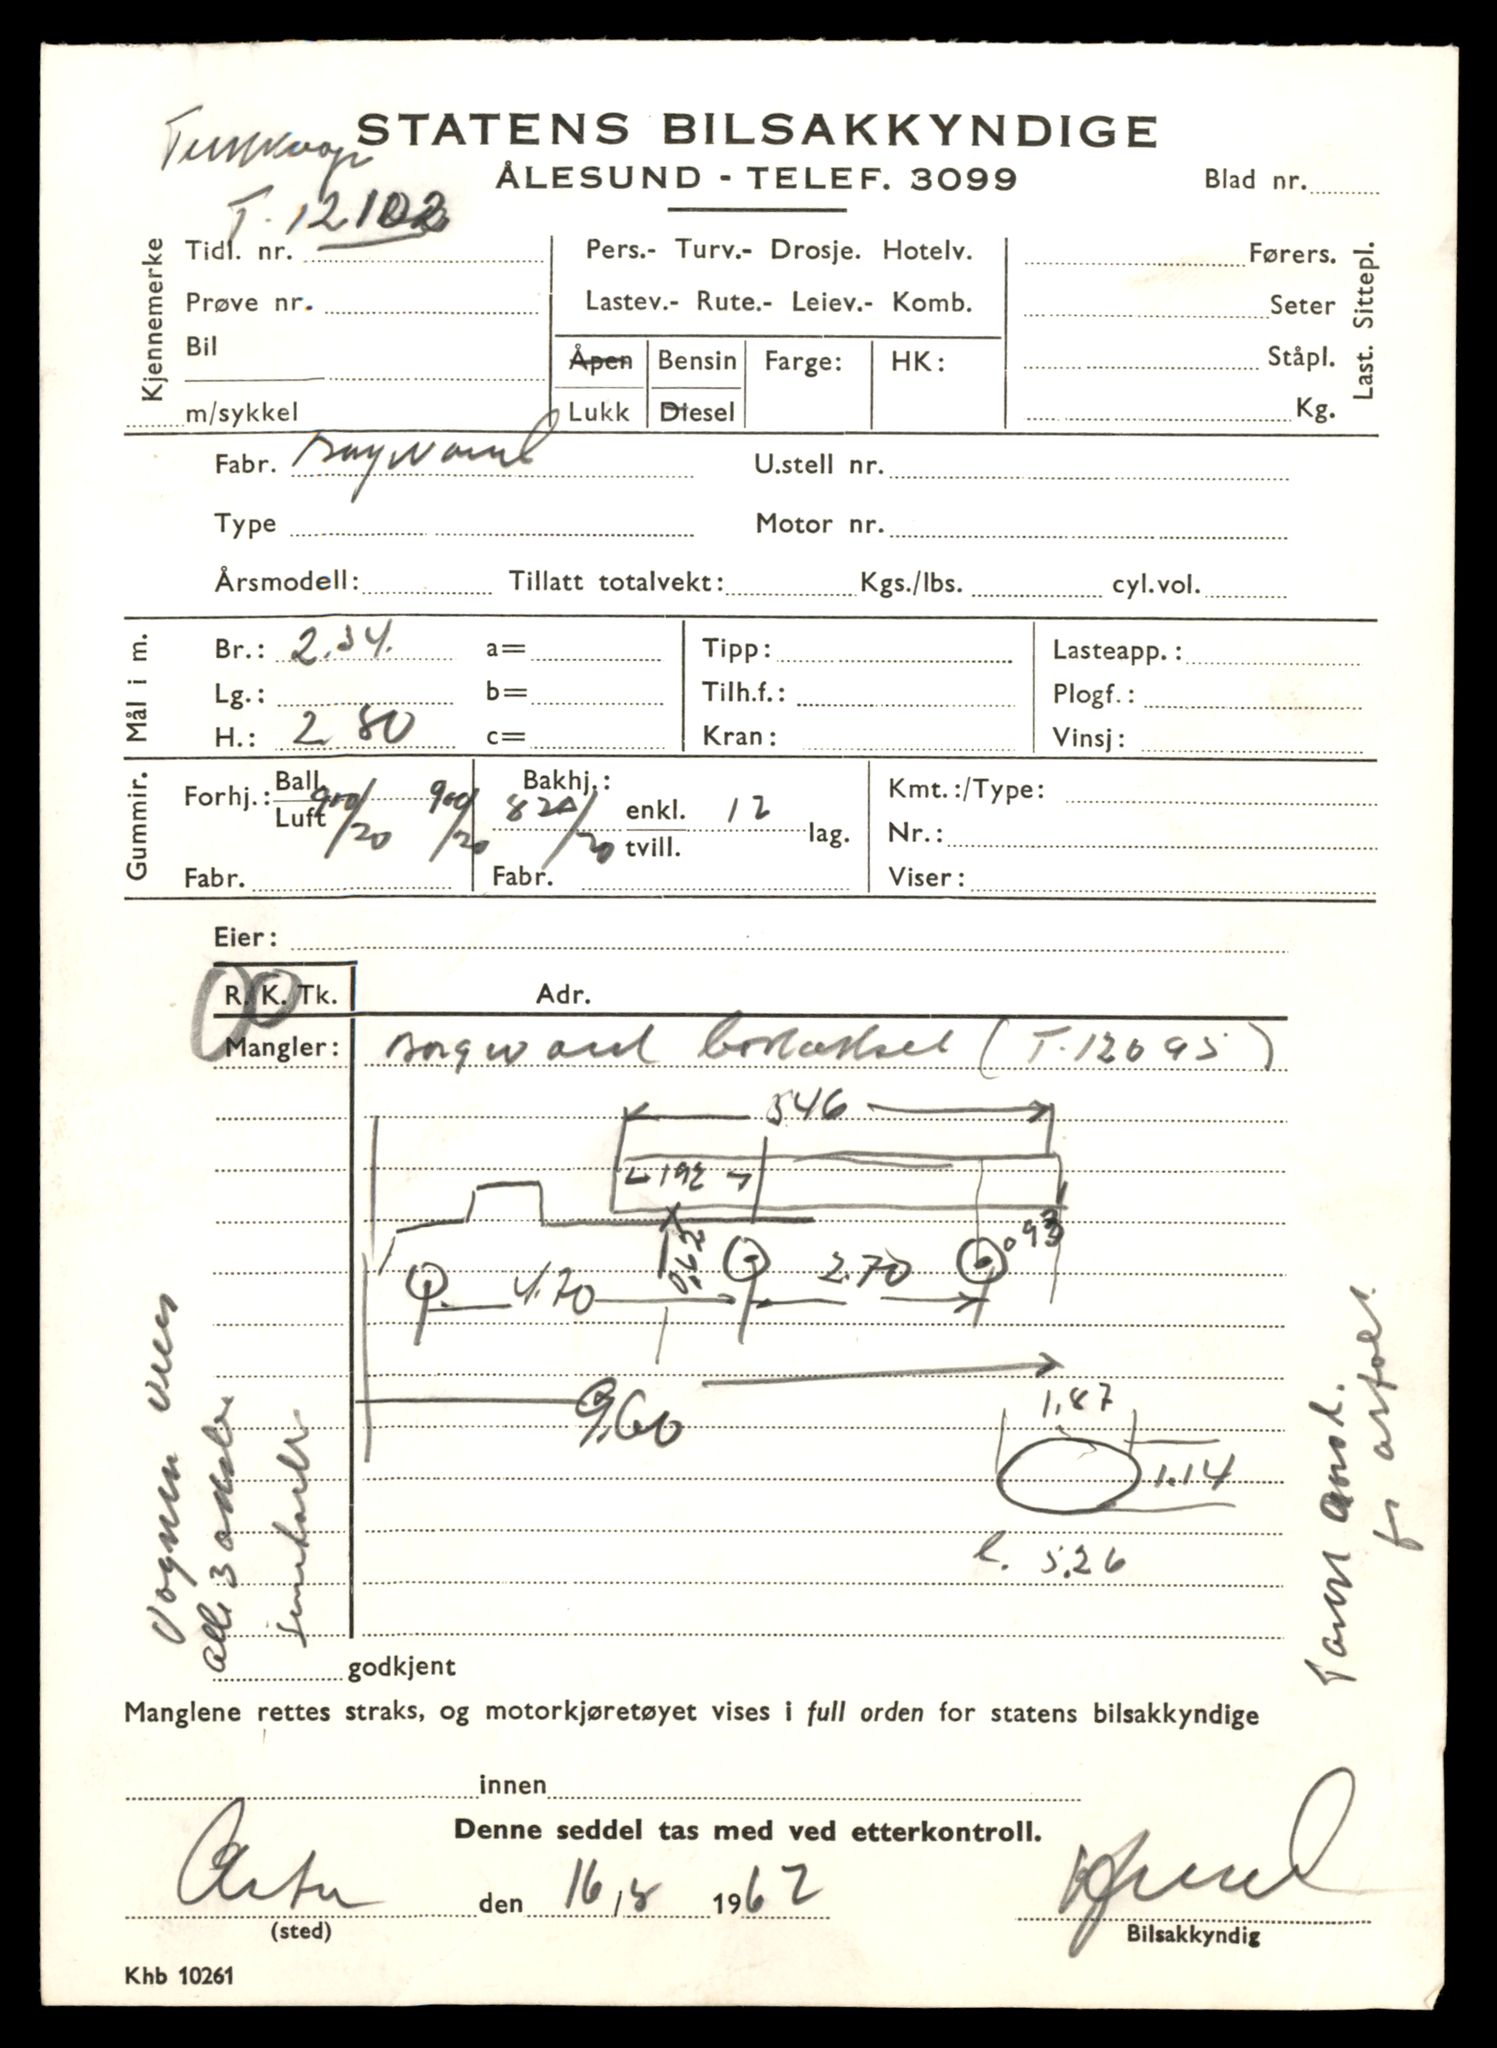 STATENS BILSAKKYNDIGE
ÅLESUND - TELEF. 3099
Blad nr.
T. 12102
Kjennemerke
Tidl. nr.
Prøve nr.
Bil
m/sykkel
Pers.- Turv.- Drosje. Hotelv.
Lastev.- Rute.- Leiev.- Komb.
Åpen
Lukk
Bensin
Diesel
Farge:
HK:
Førers.
Seter
Ståpl.
Kg.
Last. Sittepl.
Fabr. Borgward
U.stell nr.
Type
Motor nr.
Årsmodell:
Tillatt totalvekt:
Kgs./lbs.
cyl.vol.
Mål i m.
Br.: 2.34.
a=
Tipp:
Lasteapp.:
Lg.:
b=
Tilh.f.:
Plogf.:
H.: 2 80
c=
Kran:
Vinsj:
Gummir.
Forhj.: Ball Luft 900/20 900/20
Bakhj.: 820/20 enkl. tvill. 12 lag.
Fabr.
Fabr.
Kmt.:/Type:
Nr.:
Viser:
Eier:
R. K. Tk.
Adr.
Mangler: Borgward (T.12095)
546
192
0.62
4.70
2.70
093
9.60
1.87
1.14
l. 5.26
Vognen
alle 3
godkjent
Manglene rettes straks, og motorkjøretøyet vises i full orden for statens bilsakkyndige
innen
Denne seddel tas med ved etterkontroll.
den 16/8 1962
(sted)
Bilsakkyndig
Khb 10261